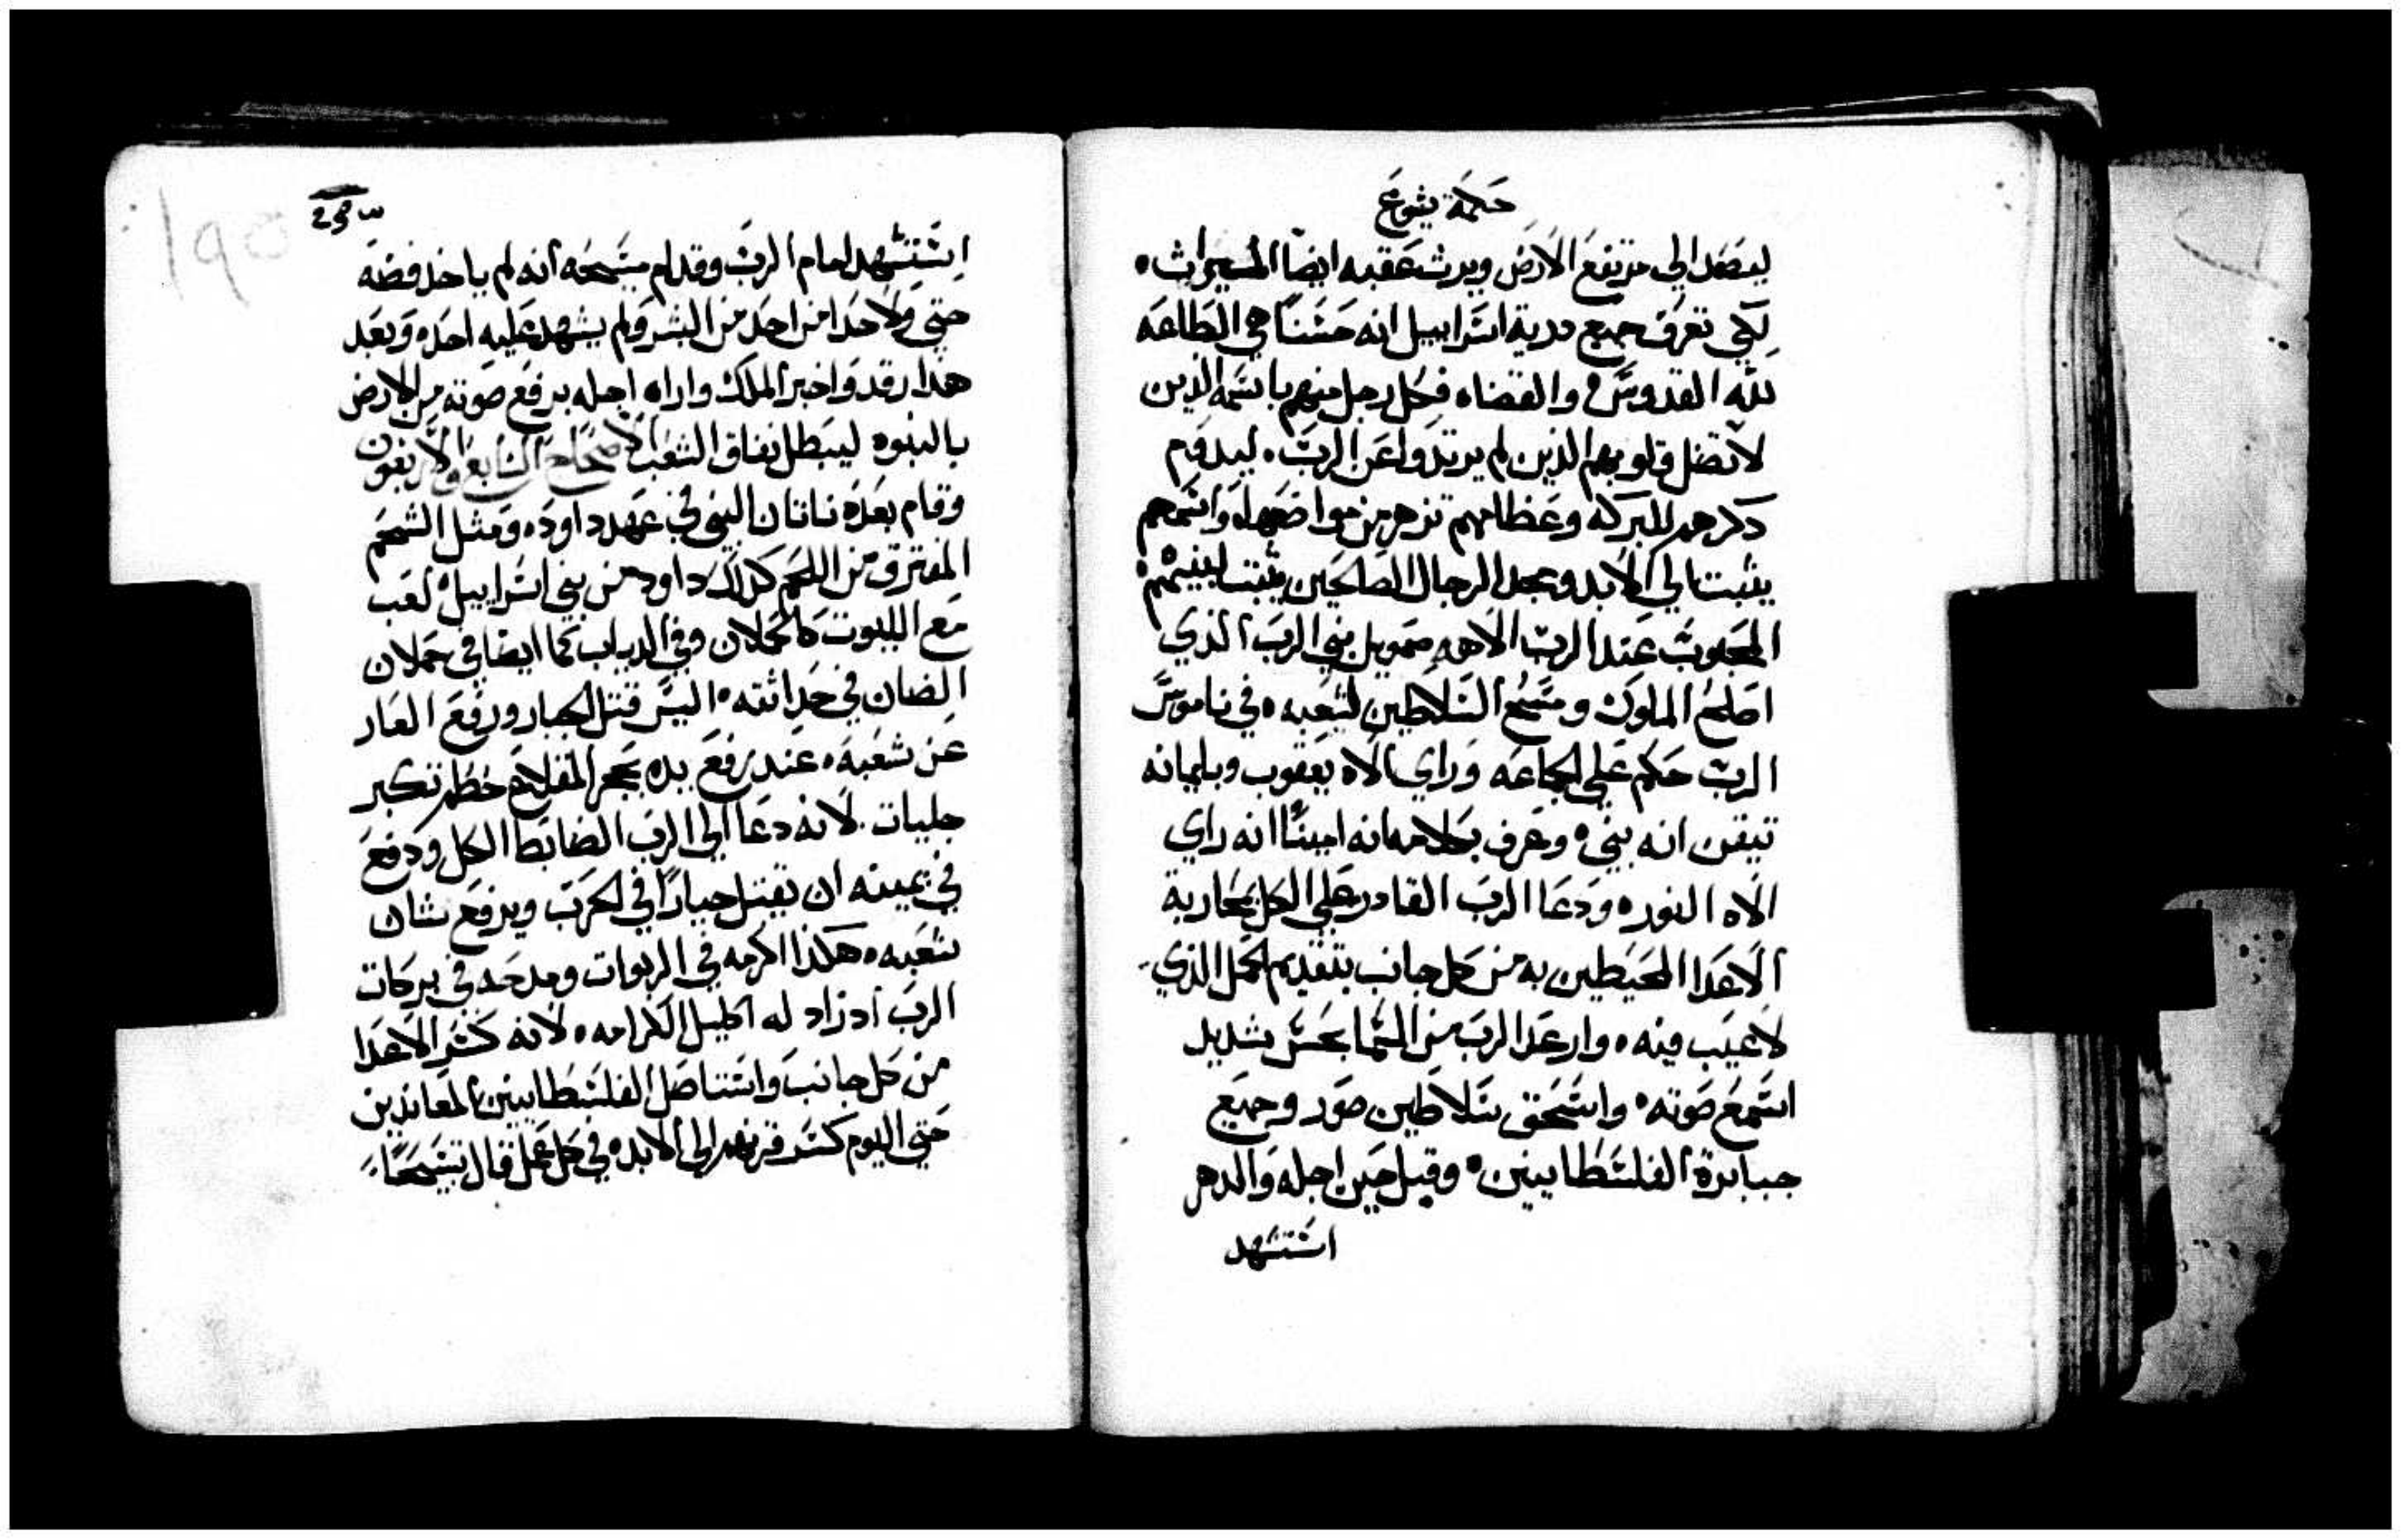 حكمة يشوع
ليصعد الي مرتفع الارض ويرث عقبه ايضا الميراث
لكي تعرف جميع درية اسراييل انه حسنا هي الطاعه
لله القدوس والقضاه فكل رجل منهم باسمه الذين
لا تضل قلوبهم الذين لم يرتدوا عن الرب ليدوم
دكرهم للبركه وعظامهم تزهر من مواضعها واسمهم
يثبت الي الابد ومجد الرجال الصالحين يثبت لبنيهم
المحبوب عند الرب الاهه صمويل نبي الرب الذي
اصلح الملوك ومسح السلاطين لشعبه في ناموس
الرب حكم علي الجماعه وراي الاه يعقوب وبايمانه
تيقن انه نبي وعرف بكلامه انه امينا انه راي
الاه النور ودعا الرب القادر علي الكل بمحاربة
الاعدا المحيطين به من كل جانب بتقديم الحمل الذي
لا عيب فيه وارعد الرب من السما بحس شديد
اسمع صوته واستحق سلاطين صور وجميع
جبابرة الفلسطايين وقبل حين اجله والدهر
استشهد
استشهد امام الرب وقدام مسيحه انه لم ياخد فضه
حتي ولا حدا من احد من البشر ولم يشهد عليه احد وبعد
هدا رقد واخبر الملك واراه اجله برفع صوته من الارض
بالنبوه ليبطل نفاق الشعب الاصحاح السابع والاربعون
وقام بعده ناتان النبي في عهد داود ومثل الشحم
المفترق من اللحم كذلك داود من بني اسراييل لعب
مع الليوت كالحملان وفي الدياب كما ايضا في حملان
الضان في حداثته اليس قتل الجبار ورفع العار
عن شعبه عند رفع يده بحجر المقلاع حطم تكبر
جليات لانه دعا الي الرب الضابط الكل ودفع
في يمينه ان تقتل جبارا في الحرب ويرفع شان
شعبه هكذا اكرمه في الربوات ومدحه في بركات
الرب ادزاد له اكليل الكرامه لانه كسر الاعدا
من كل جانب واستاصل الفلسطايين المعاندين
حتي اليوم كسر قرنهم الي الابد في كل عمل قال تسبيحا